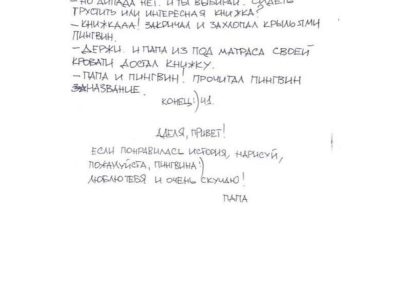 – НО ДИПАДА НЕТ. И ТЫ ВЫБИРАЙ. СИДЕТЬ
ГРУСТИТЬ ИЛИ ИНТЕРЕСНАЯ КНИЖКА?
– КНИЖКДАА! ЗАКРИЧАЛ И ЗАХЛОПАЛ КРЫЛЬЯМИ
ПИНГВИН.
– ДЕРЖИ. И ПАПА ИЗ ПОД МАТРАСА СВОЕЙ
КРОВАТИ ДОСТАЛ КНИЖКУ.
– ПАПА И ПИНГВИН! ПРОЧИТАЛ ПИНГВИН
НАЗВАНИЕ.
КОНЕЦ:) Ч1.
АДЕЛЯ, ПРИВЕТ!
ЕСЛИ ПОНРАВИЛАСЬ ИСТОРИЯ, НАРИСУЙ,
ПОЖАЛУЙСТА, ПИНГВИНА:)
ЛЮБЛЮ ТЕБЯ И ОЧЕНЬ СКУЧАЮ!
ПАПА